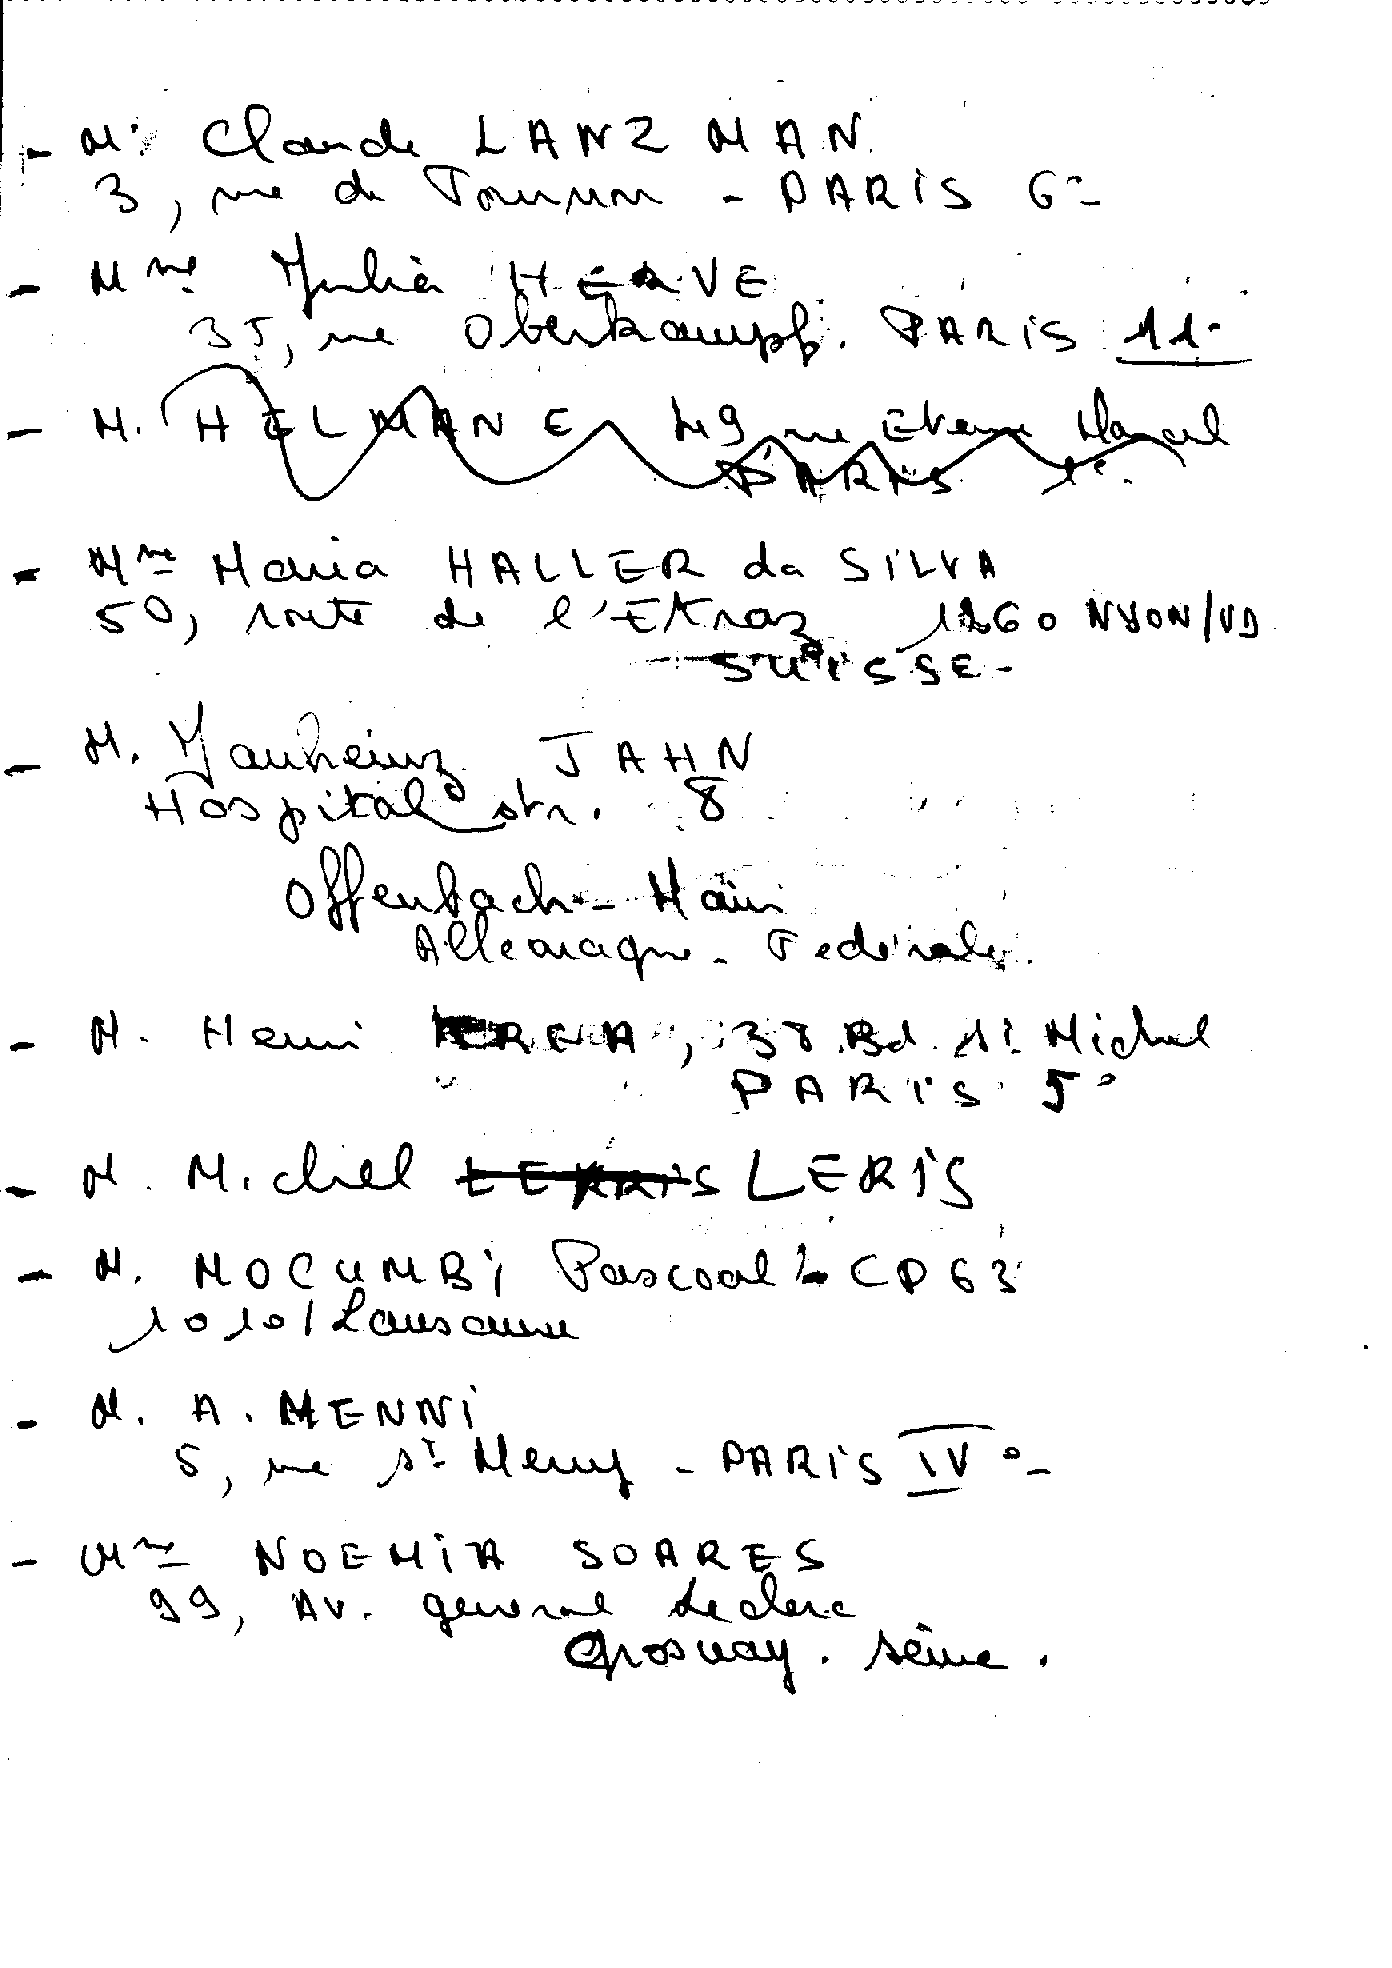 - M. Claude LANZMAN
3, rue de Tournon - PARIS 6°-
- Mme Julia HERVE
35, rue Oberkampf. PARIS 11°
- M. HELMANE 49 rue Etienne Marcel
PARIS 1°.
- Mme Maria HALLER da SILVA
50, route de l'Etraz 1260 NYON/VD
SUISSE-
- M. Janheinz JAHN
Hospital str. 8
Offenbach - Main
Allemagne - Federale.
- M. Henri KREA, 38 Bd. St Michel
PARIS 5°
- M. Michel LERIS
- M. MOCUMBI Pascoal - CP 63
1010/Lausanne
- M. A. MENNI
5, rue St Merry - PARIS IV°-
- Mme NOEMIA SOARES
99, Av. general Leclerc
Grosnay. Seine.